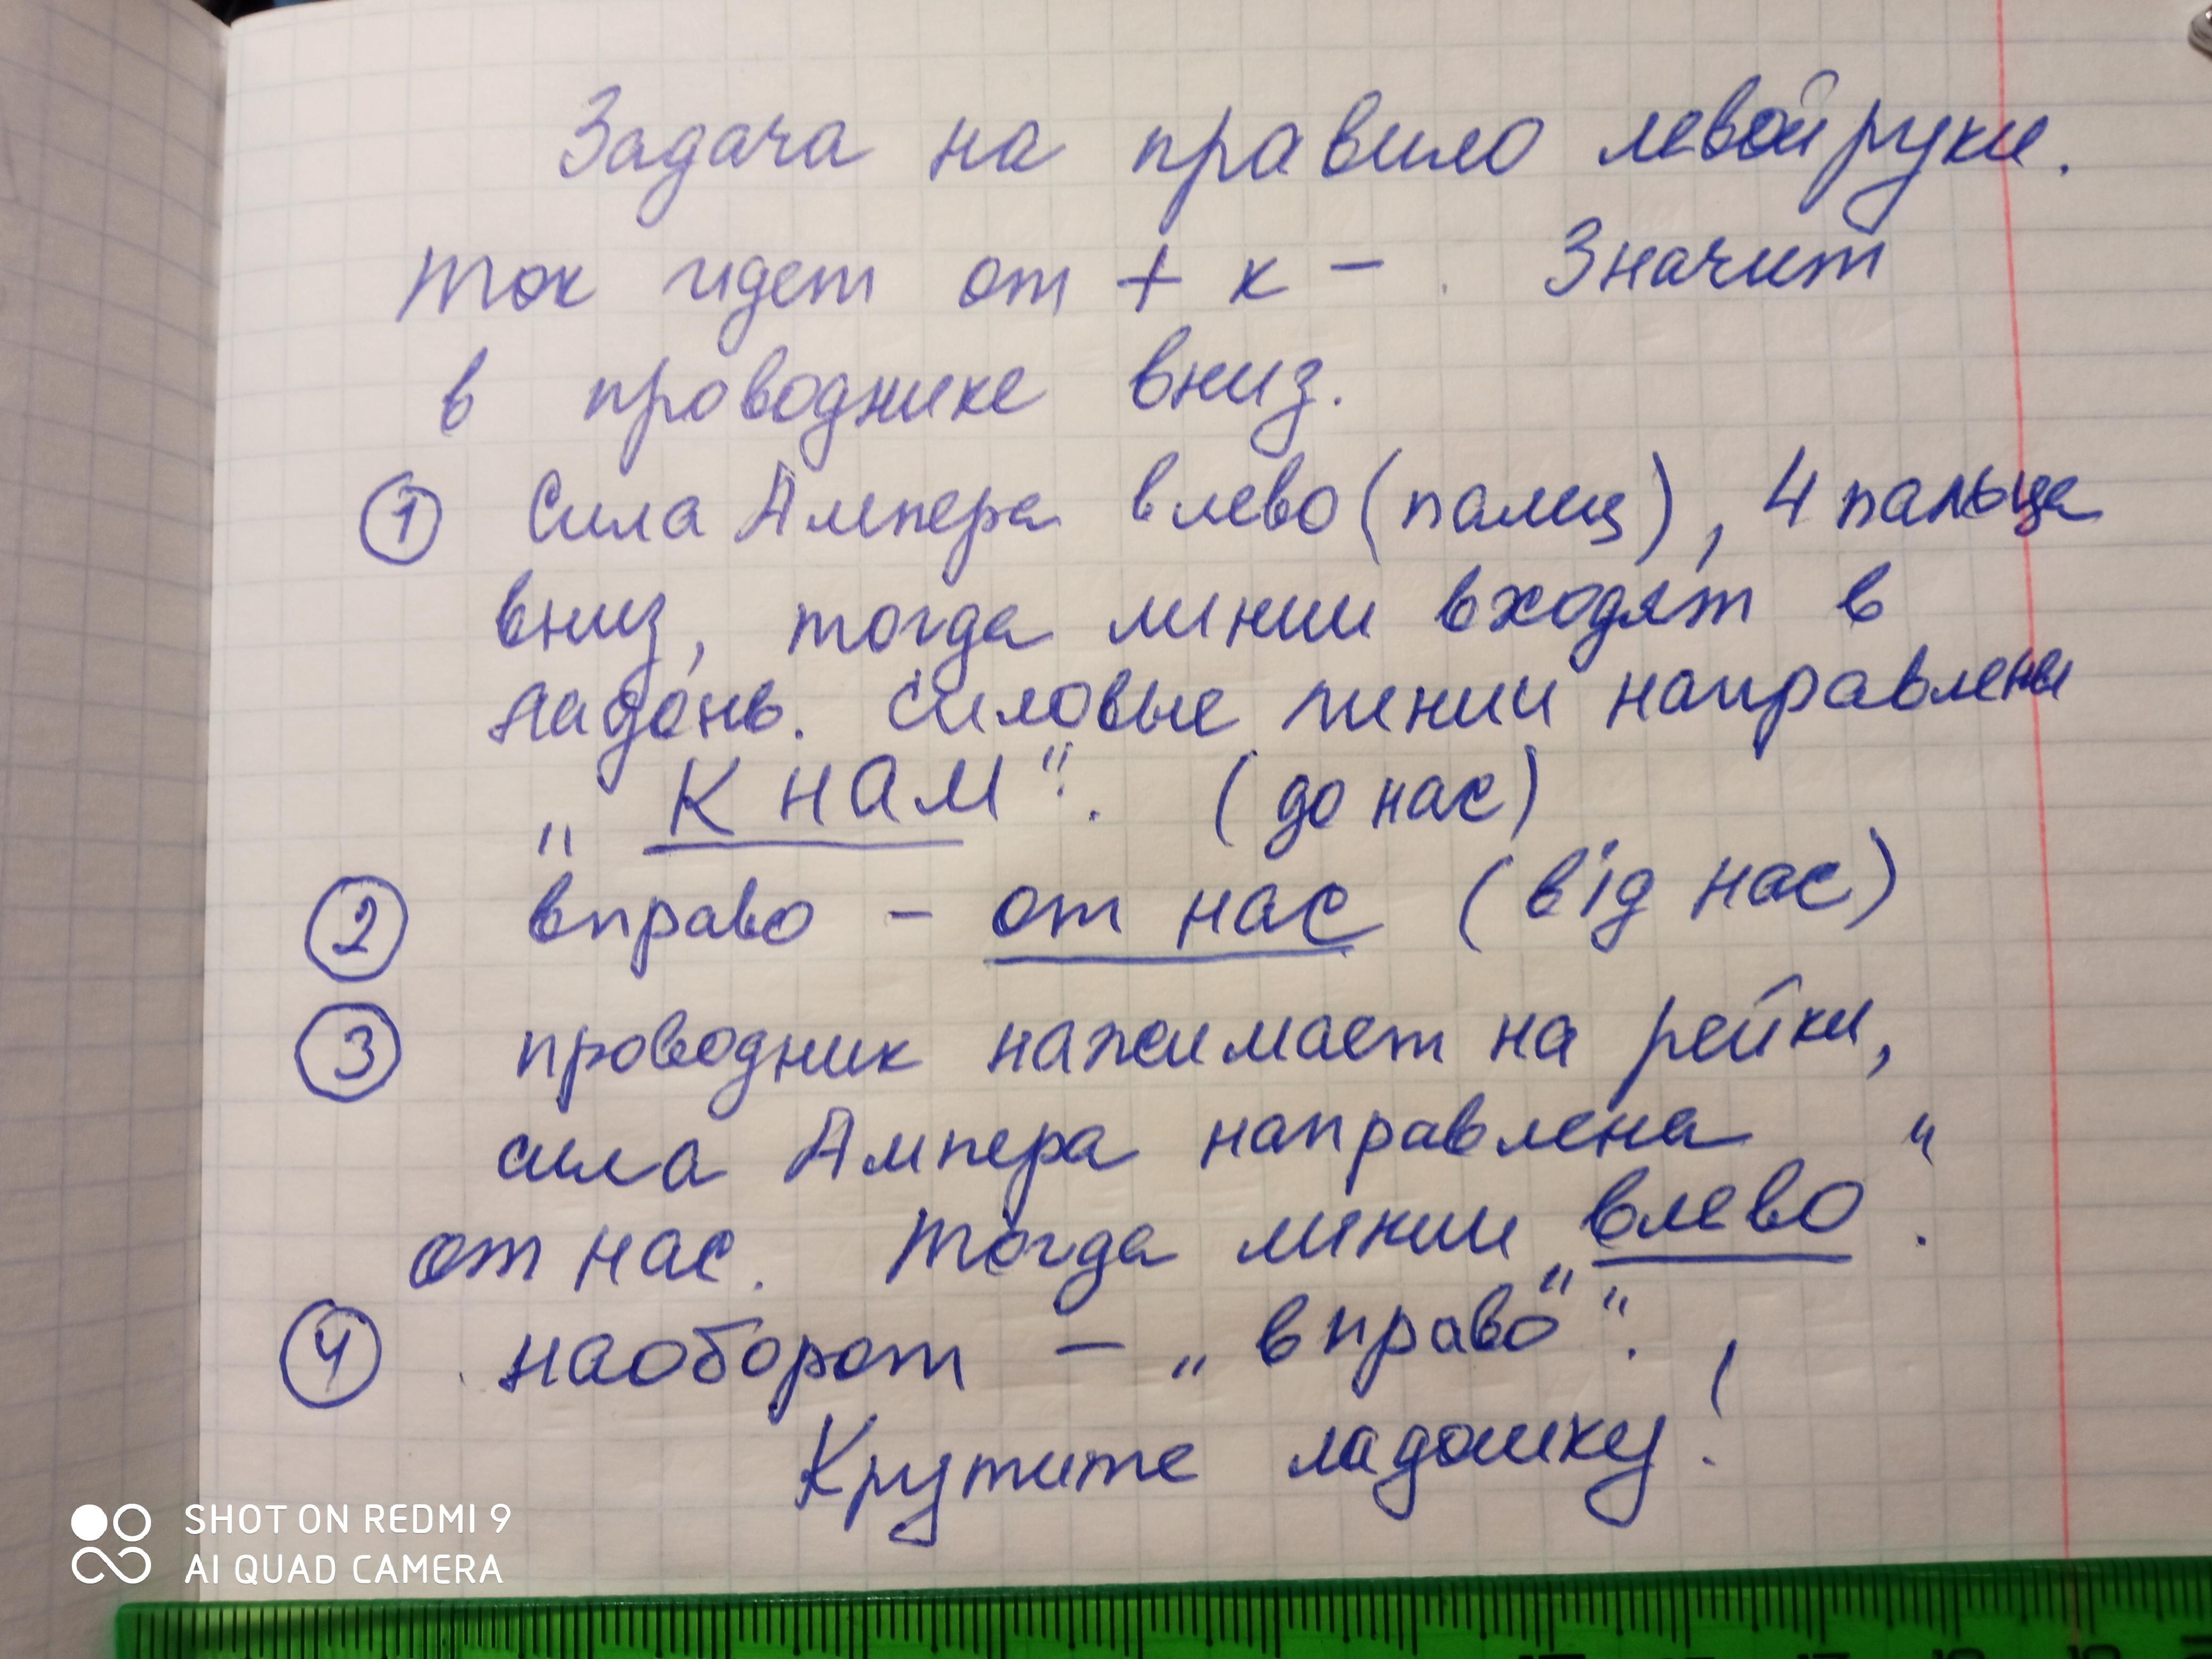 Задача на правило левой руки.
Ток идет от + к - . Значит
в проводнике вниз.
1 Сила Ампера влево (палец), 4 пальца
вниз, тогда линии входят в
ладонь. Силовые линии направлены
„ К НАМ “. (до нас)
2 вправо - от нас (від нас)
3 проводник нажимает на рейки,
сила Ампера направлена
от нас. Тогда линии „влево“.
4 наоборот - „вправо“.
Крутите ладошку!
SHOT ON REDMI 9
AI QUAD CAMERA